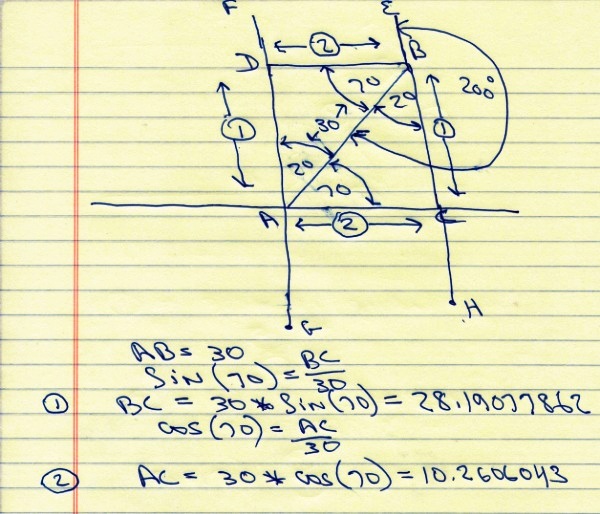 F
E
2
D
B
70
20
200°
30
1
1
20
70
A
2
C
G
H
AB = 30
Sin(70) = BC/30
1 BC = 30 * Sin(70) = 28.19077862
cos(70) = AC/30
2 AC = 30 * cos(70) = 10.2606043